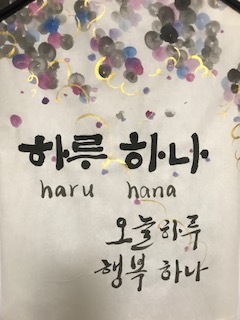 하루 하나
haru hana
오늘하루
행복 하나